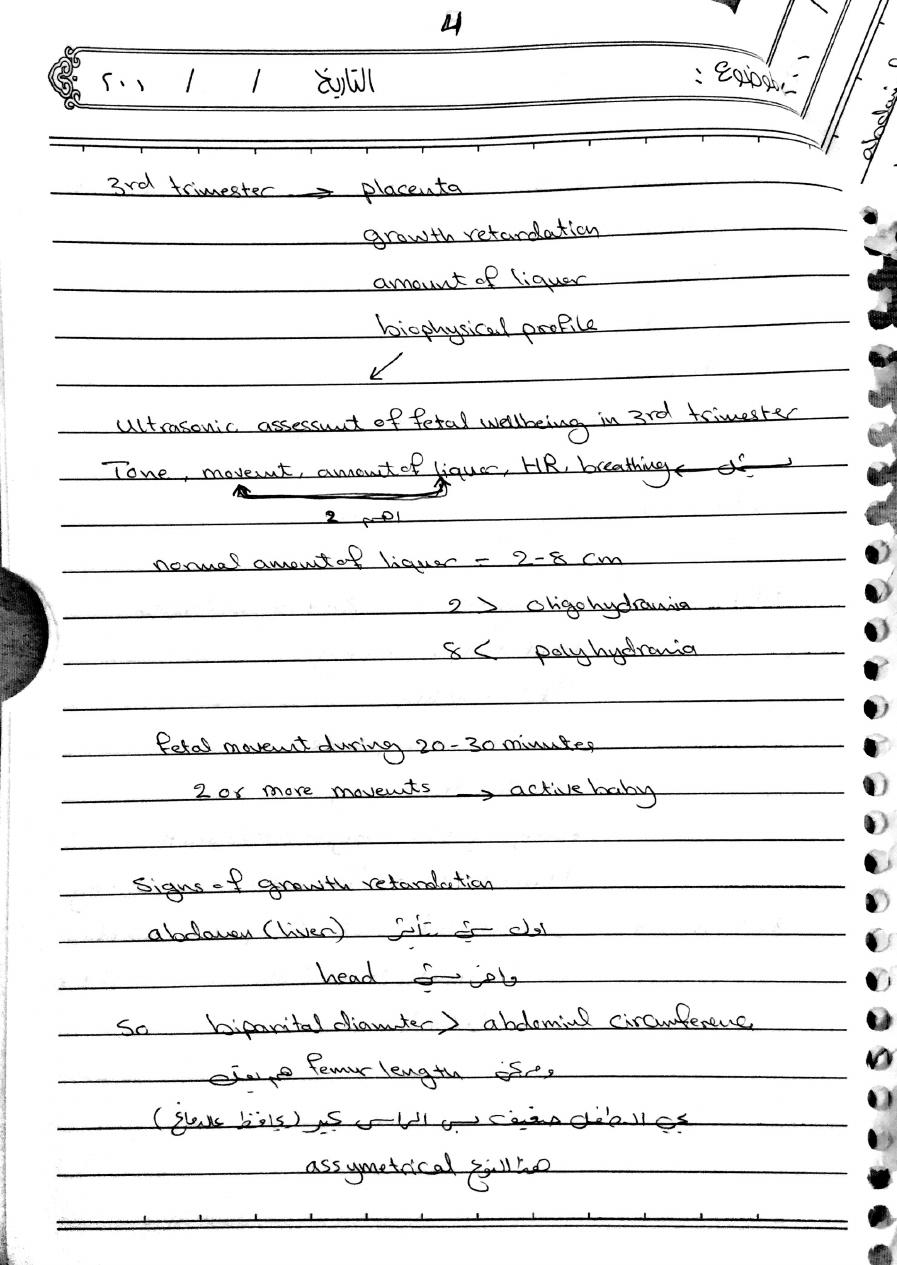 4
الموضوع : التاريخ / / ٢٠٠١
3rd trimester → placenta
growth retardation
amount of liquer
biophysical profile
Ultrasonic assessmt of fetal wellbeing in 3rd trimester
Tone, movemt, amount of liquer, HR, breathing ← يشمل
اهم 2
normal amount of liquer = 2-8 cm
2 > oligohydramnia
8 < polyhydramnia
fetal movemt during 20-30 minutes
2 or more movemts → active baby
Signs of growth retardation
abdomen (liver) اول شي يتأثر
head واخر شي
So biparital diamuter > abdominl circumference
femur length
يجي الطفل ضعيف بس الراس كبير (يحافظ عالدماغ)
assymetrical هذا النوع